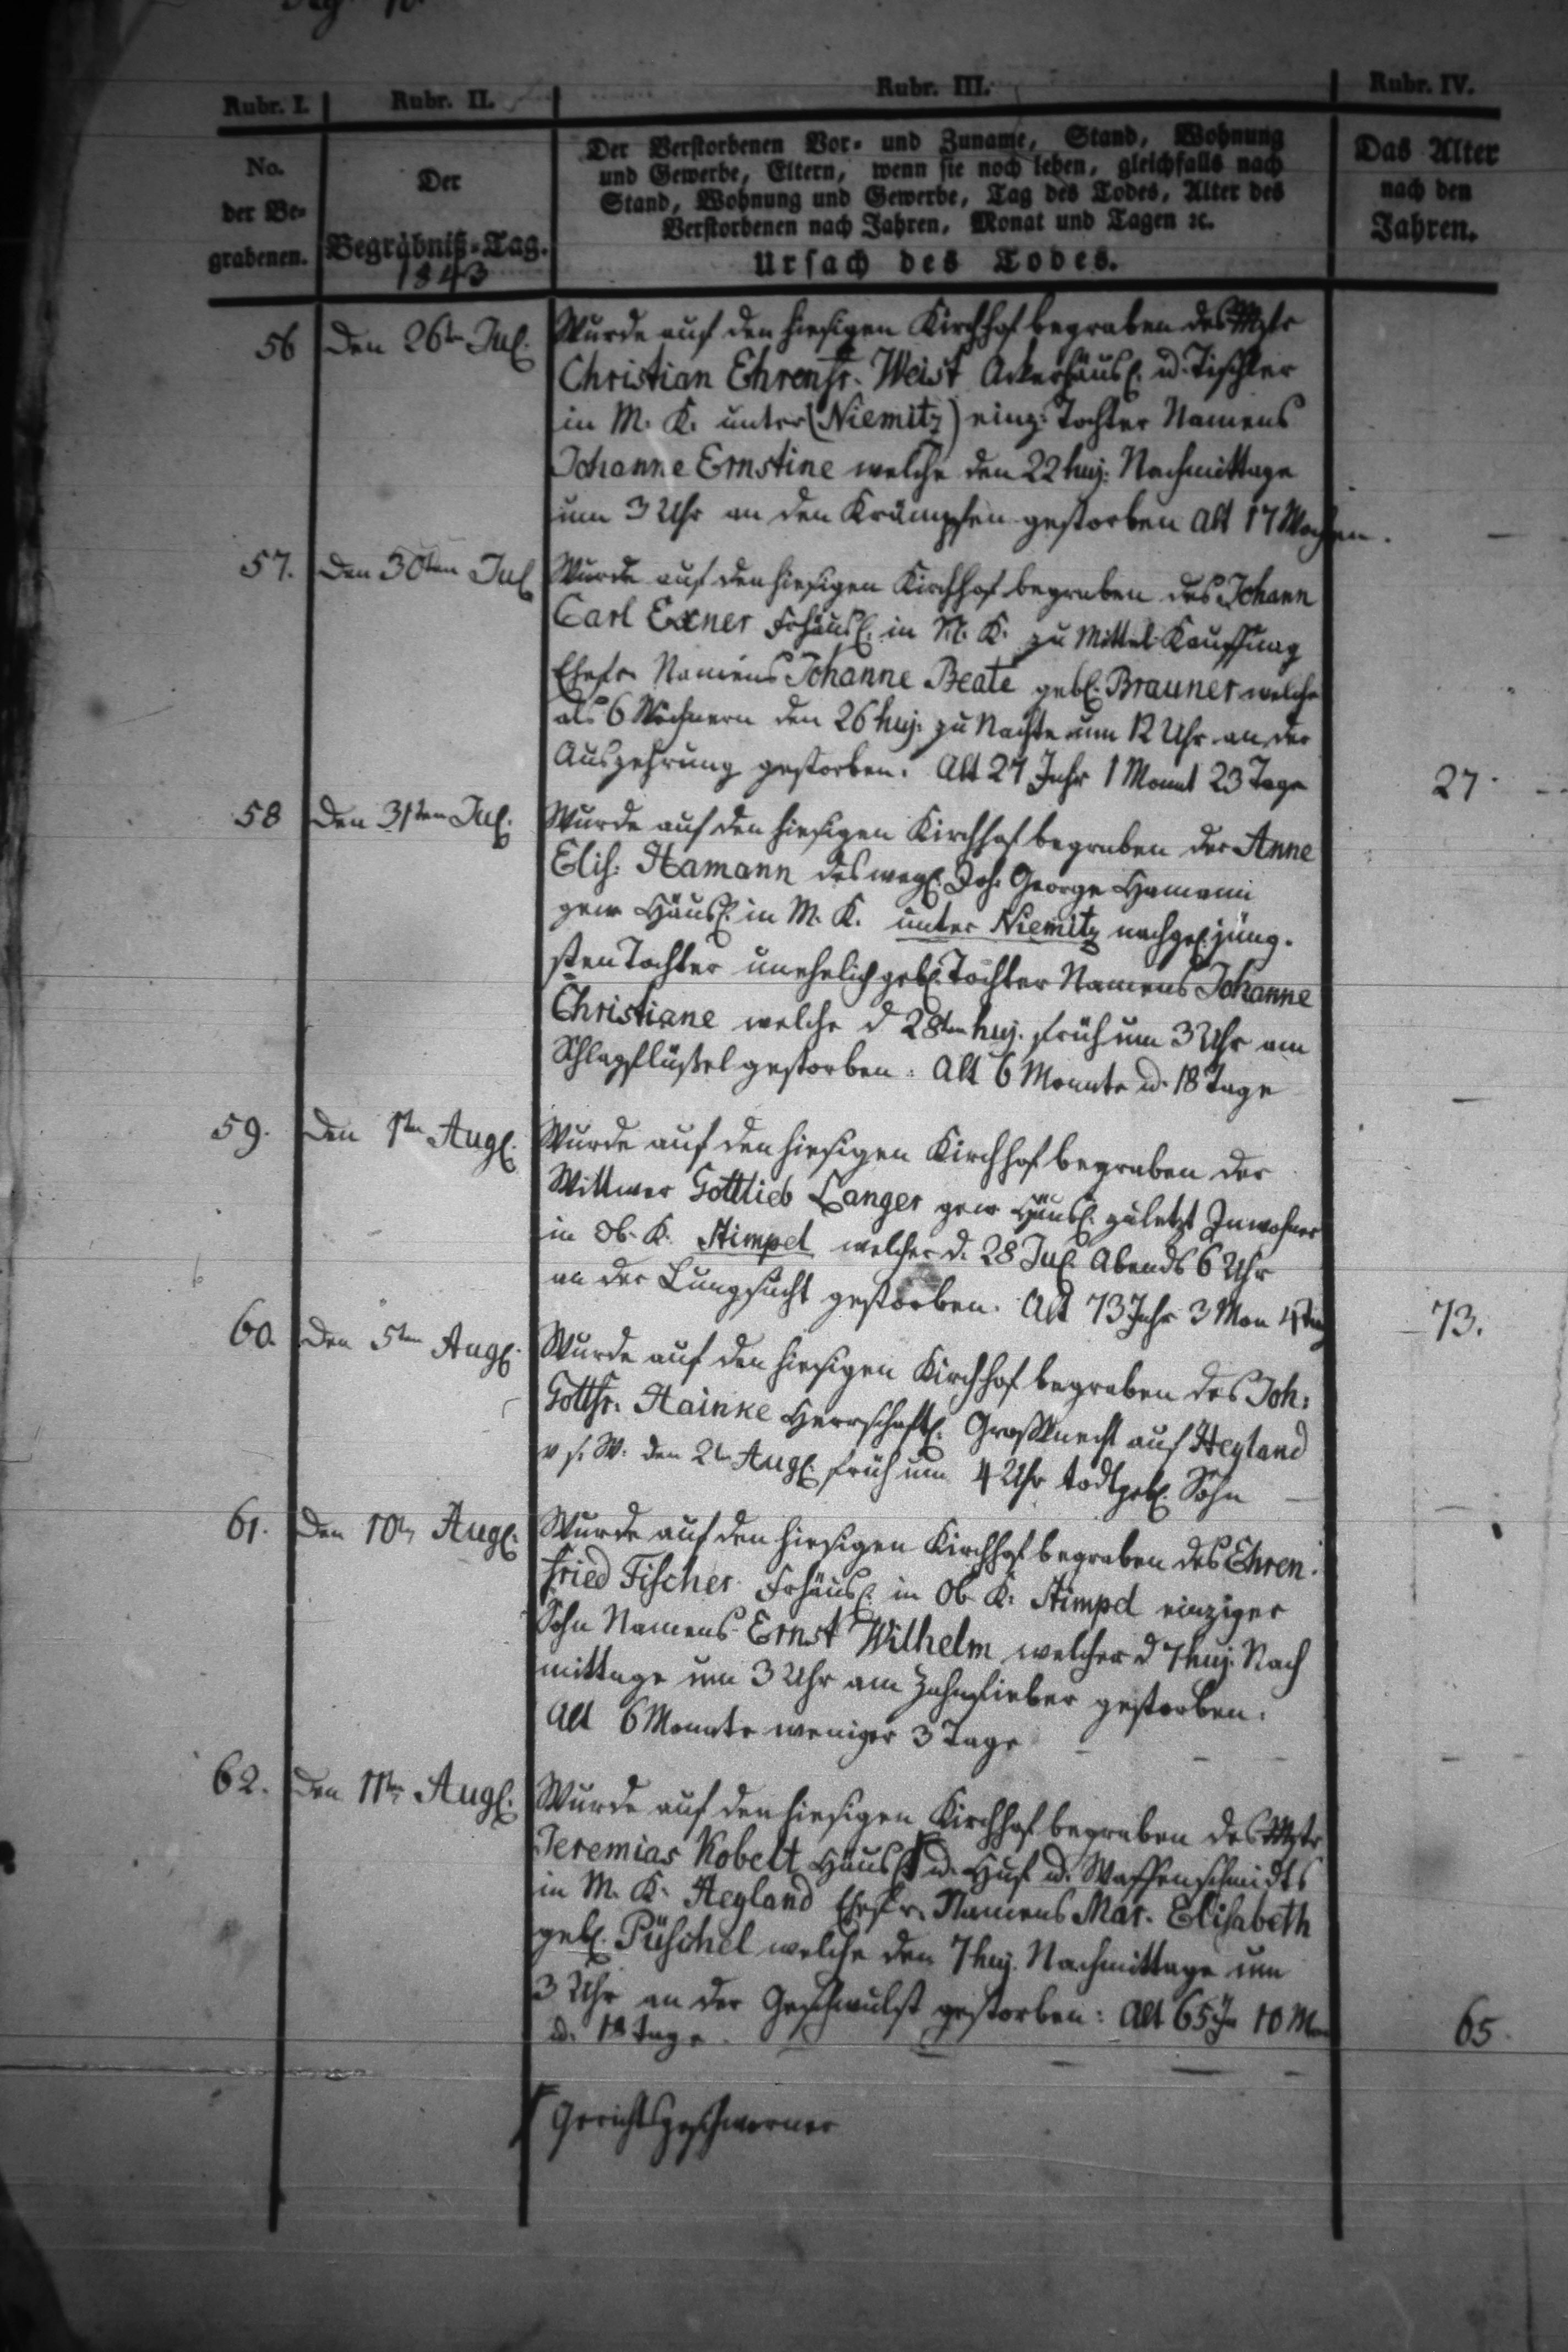 Rubr. I. Rubr. II. Rubr. III. Rubr. IV.
No.
der Be-
grabenen.
Der
Begräbniß-Tag.
1843
Der Verstorbenen Vor- und Zuname, Stand, Wohnung
und Gewerbe, Eltern, wenn sie noch leben, gleichfalls nach
Stand, Wohnung und Gewerbe, Tag des Todes, Alter des
Verstorbenen nach Jahren, Monat und Tagen ꝛc.
Ursach des Todes.
Das Alter
nach den
Jahren.
56 Den 26ten Jul. Wurde auf den hiesigen Kirchhof begraben des Mstr
Christian Ehrenfr. Weist Ackerhäusl. u. Tischler
in M. K. unter (Niemitz) einz. Tochter Namens
Johanne Ernstine welche den 22 huj: Nachmittage
um 3 Uhr an den Krämpfen gestorben Alt 17 Wochen. –
57. Den 30ten Jul Wurde auf den hiesigen Kirchhof begraben des Johann
Carl Exner Frhäusl. in M. K. zu Mittel Kauffung
Ehefr. Namens Johanne Beate gebl. Brauner welche
als 6 Wöchnern den 26 huj: zu Nachte um 12 Uhr an der
Auszehrung gestorben. Alt 27 Jahr 1 Monat 23 Tage 27.
58 Den 31ten Jul. Wurde auf den hiesigen Kirchhof begraben der Anne
Elis: Hamann des weyl. Joh. George Hamann
gew Häusl. in M. K. unter Niemitz nachgel. jüng-
sten Tochter unehelich gebl. Tochter Namens Johanne
Christiane welche d 28ten huj. früh um 3 Uhr am
Schlagflüßel gestorben. Alt 6 Monate u. 18 Tage –
59. Den 1ten Augl. Wurde auf den hiesigen Kirchhof begraben der
Wittwer Gottlieb Langer gew Häusl. zuletzt Inwohner
in Ob. K. Stimpel welcher d. 28 Jul. Abends 6 Uhr
an der Lungsucht gestorben. Alt 73 Jahr 3 Mon 4 Tag 73.
60. Den 5ten Augl. Wurde auf den hiesigen Kirchhof begraben des Joh:
Gottfr. Hainke Herrschaftl. Großknecht auf Heyland
v s. W. den 2ten Augl. früh um 4 Uhr todtgebl. Sohn –
61. Den 10ten Augl. Wurde auf den hiesigen Kirchhof begraben des Ehren-
fried Fischer Frhäusl. in Ob. K. Stimpel einziger
Sohn Namens Ernst Wilhelm welcher d 7 huj. Nach
mittage um 3 Uhr am Zahnfieber gestorben.
Alt 6 Monate weniger 3 Tage –
62. Den 11ten Augl. Wurde auf den hiesigen Kirchhof begraben des Mstr
Jeremias Kobelt Häusl. u. Huf u. Waffenschmidts
in M. K. Heyland Ehefr. Namens Mar. Elisabeth
gebl. Püschel welche den 7 huj. Nachmittage um
3 Uhr an der Geschwulst gestorben: Alt 65 Ja 10 Mon
u. 18 Tage. 65.
Gerichtsgeschworner